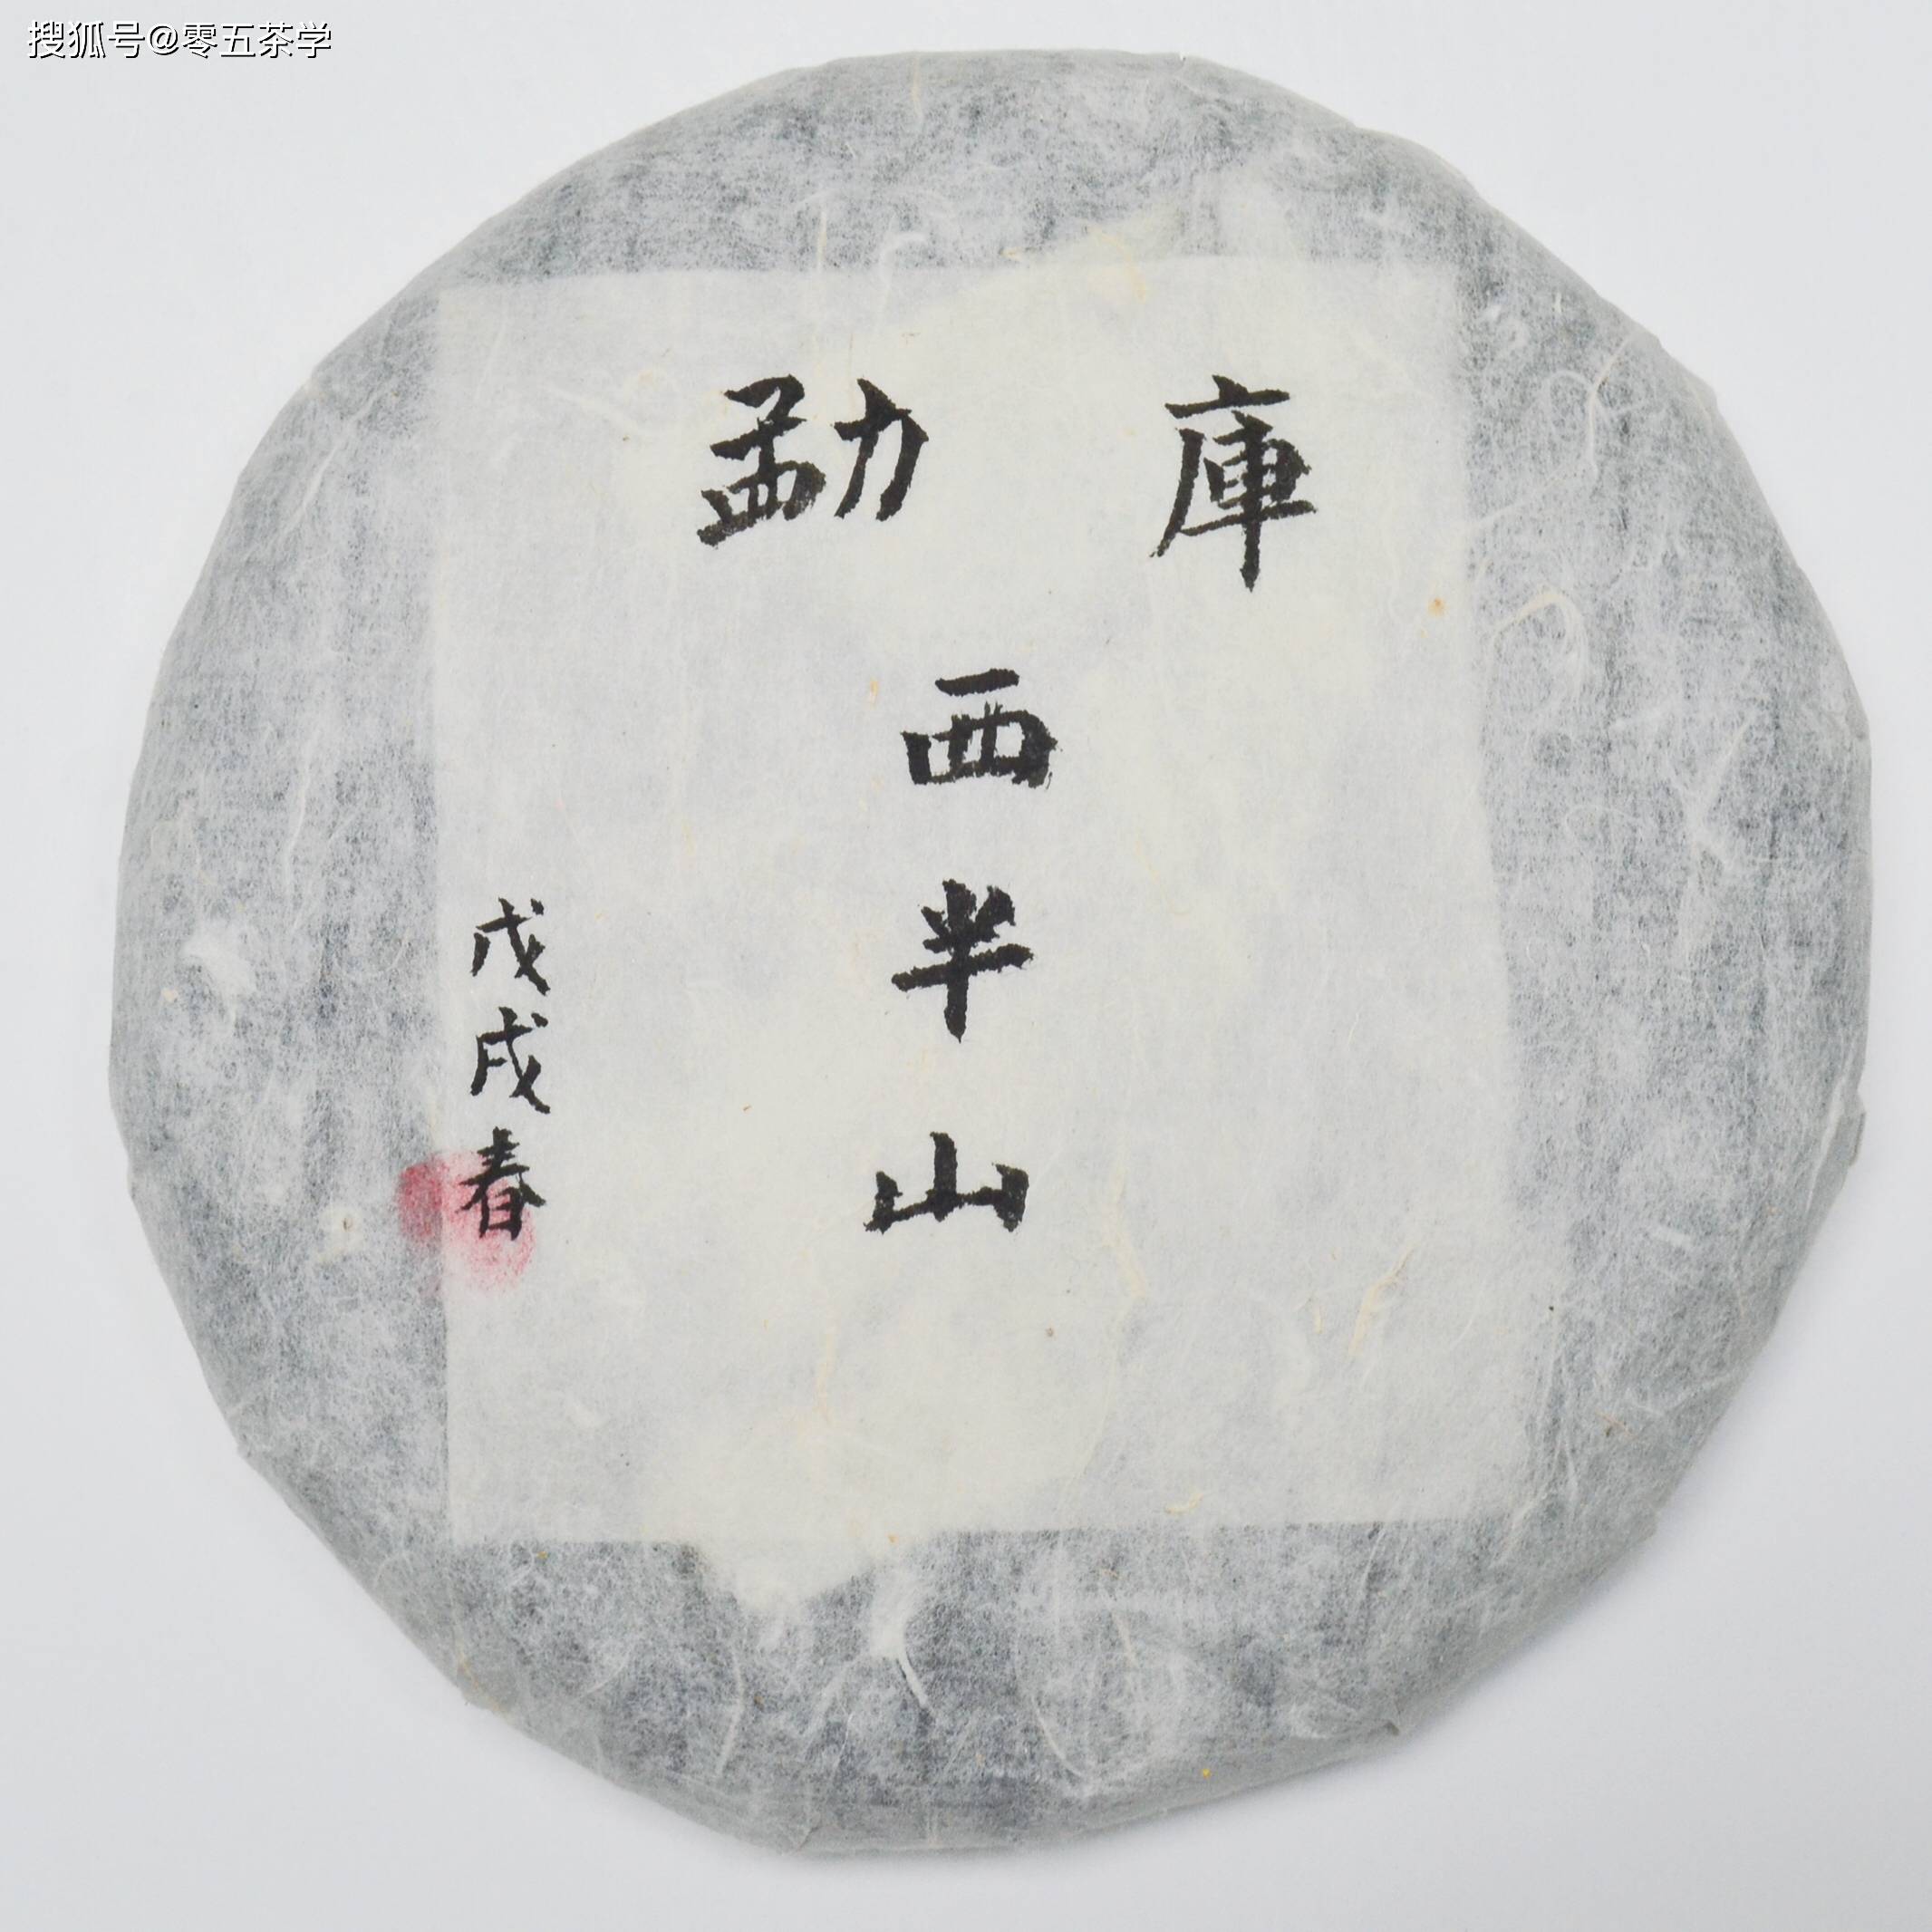 搜狐号@零五茶学
勐 庫
西半山
戊戌春